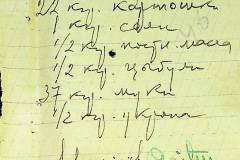 "22 кг. картошки
1 кг. соли
1/2 кг. масла
1/2 кг. цыбули
"37 кг. муки
1/2 кг. укропа